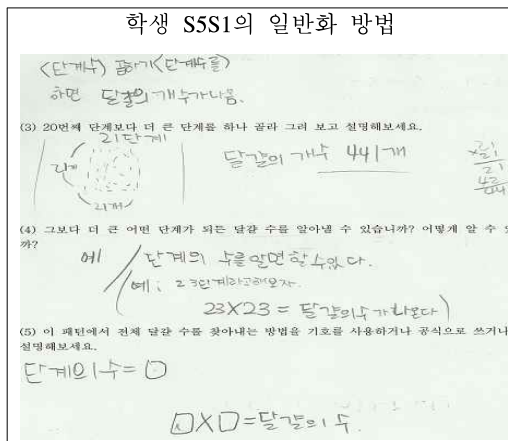 학생 S5S1의 일반화 방법
(단계수) 곱하기(단계수를)
하면 달걀의 개수가나옴.
(3) 20번째 단계보다 더 큰 단계를 하나 골라 그려 보고 설명해보세요.
21단계
21개
21개
달걀의 개수 441개
×21
21
42
441
(4) 그보다 더 큰 어떤 단계가 되든 달걀 수를 알아낼 수 있습니까? 어떻게 알 수
까?
예
단계의 수를알면할수있다.
(예; 23단계라고해보자.
23X23 = 달걀의수가나온다)
(5) 이 패턴에서 전체 달걀 수를 찾아내는 방법을 기호를 사용하거나 공식으로 쓰거나
설명해보세요.
단계의수=□
□X□=달걀의 수.